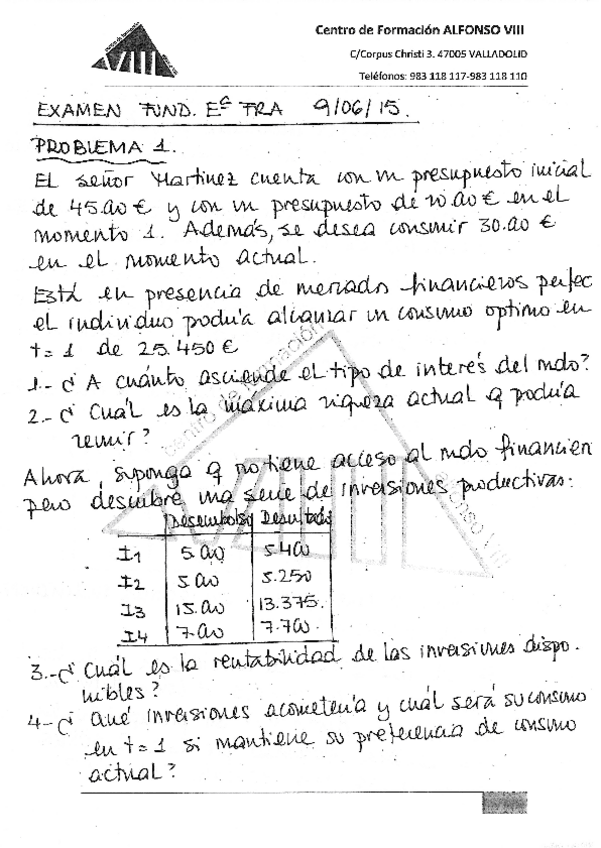 Centro de Formación ALFONSO VIII
C/Corpus Christi 3. 47005 VALLADOLID
Teléfonos: 983 118 117-983 118 110
VIII
EXAMEN FUND. Eª FRA 9/06/15.
PROBLEMA 1.
EL señor Martinez cuenta con un presupuesto inicial
de 45.000 € y con un presupuesto de 20.000 € en el
momento 1. Además, se desea consumir 30.000 €
en el momento actual.
Está en presencia de mercados financieros perfec
el individuo podría alcanzar un consumo optimo en
t=1 de 25.450 €
1.- ¿ A cuánto asciende el tipo de interés del mdo?
2.- ¿ Cuál es la máxima riqueza actual q podría
reunir?
Ahora, suponga q no tiene acceso al mdo financier
pero descubre una serie de inversiones productivas:
Desembolso Resultado
I1 5.000 5.400
I2 5.000 5.250
I3 15.000 13.375.
I4 7.000 7.700
3.- ¿ Cuál es la rentabilidad de las inversiones dispo.
nibles?
4.- ¿ Qué inversiones acometería y cuál será su consumo
en t=1 si mantiene su preferencia de consumo
actual?
centro de formación
alfonso VIII
VIII